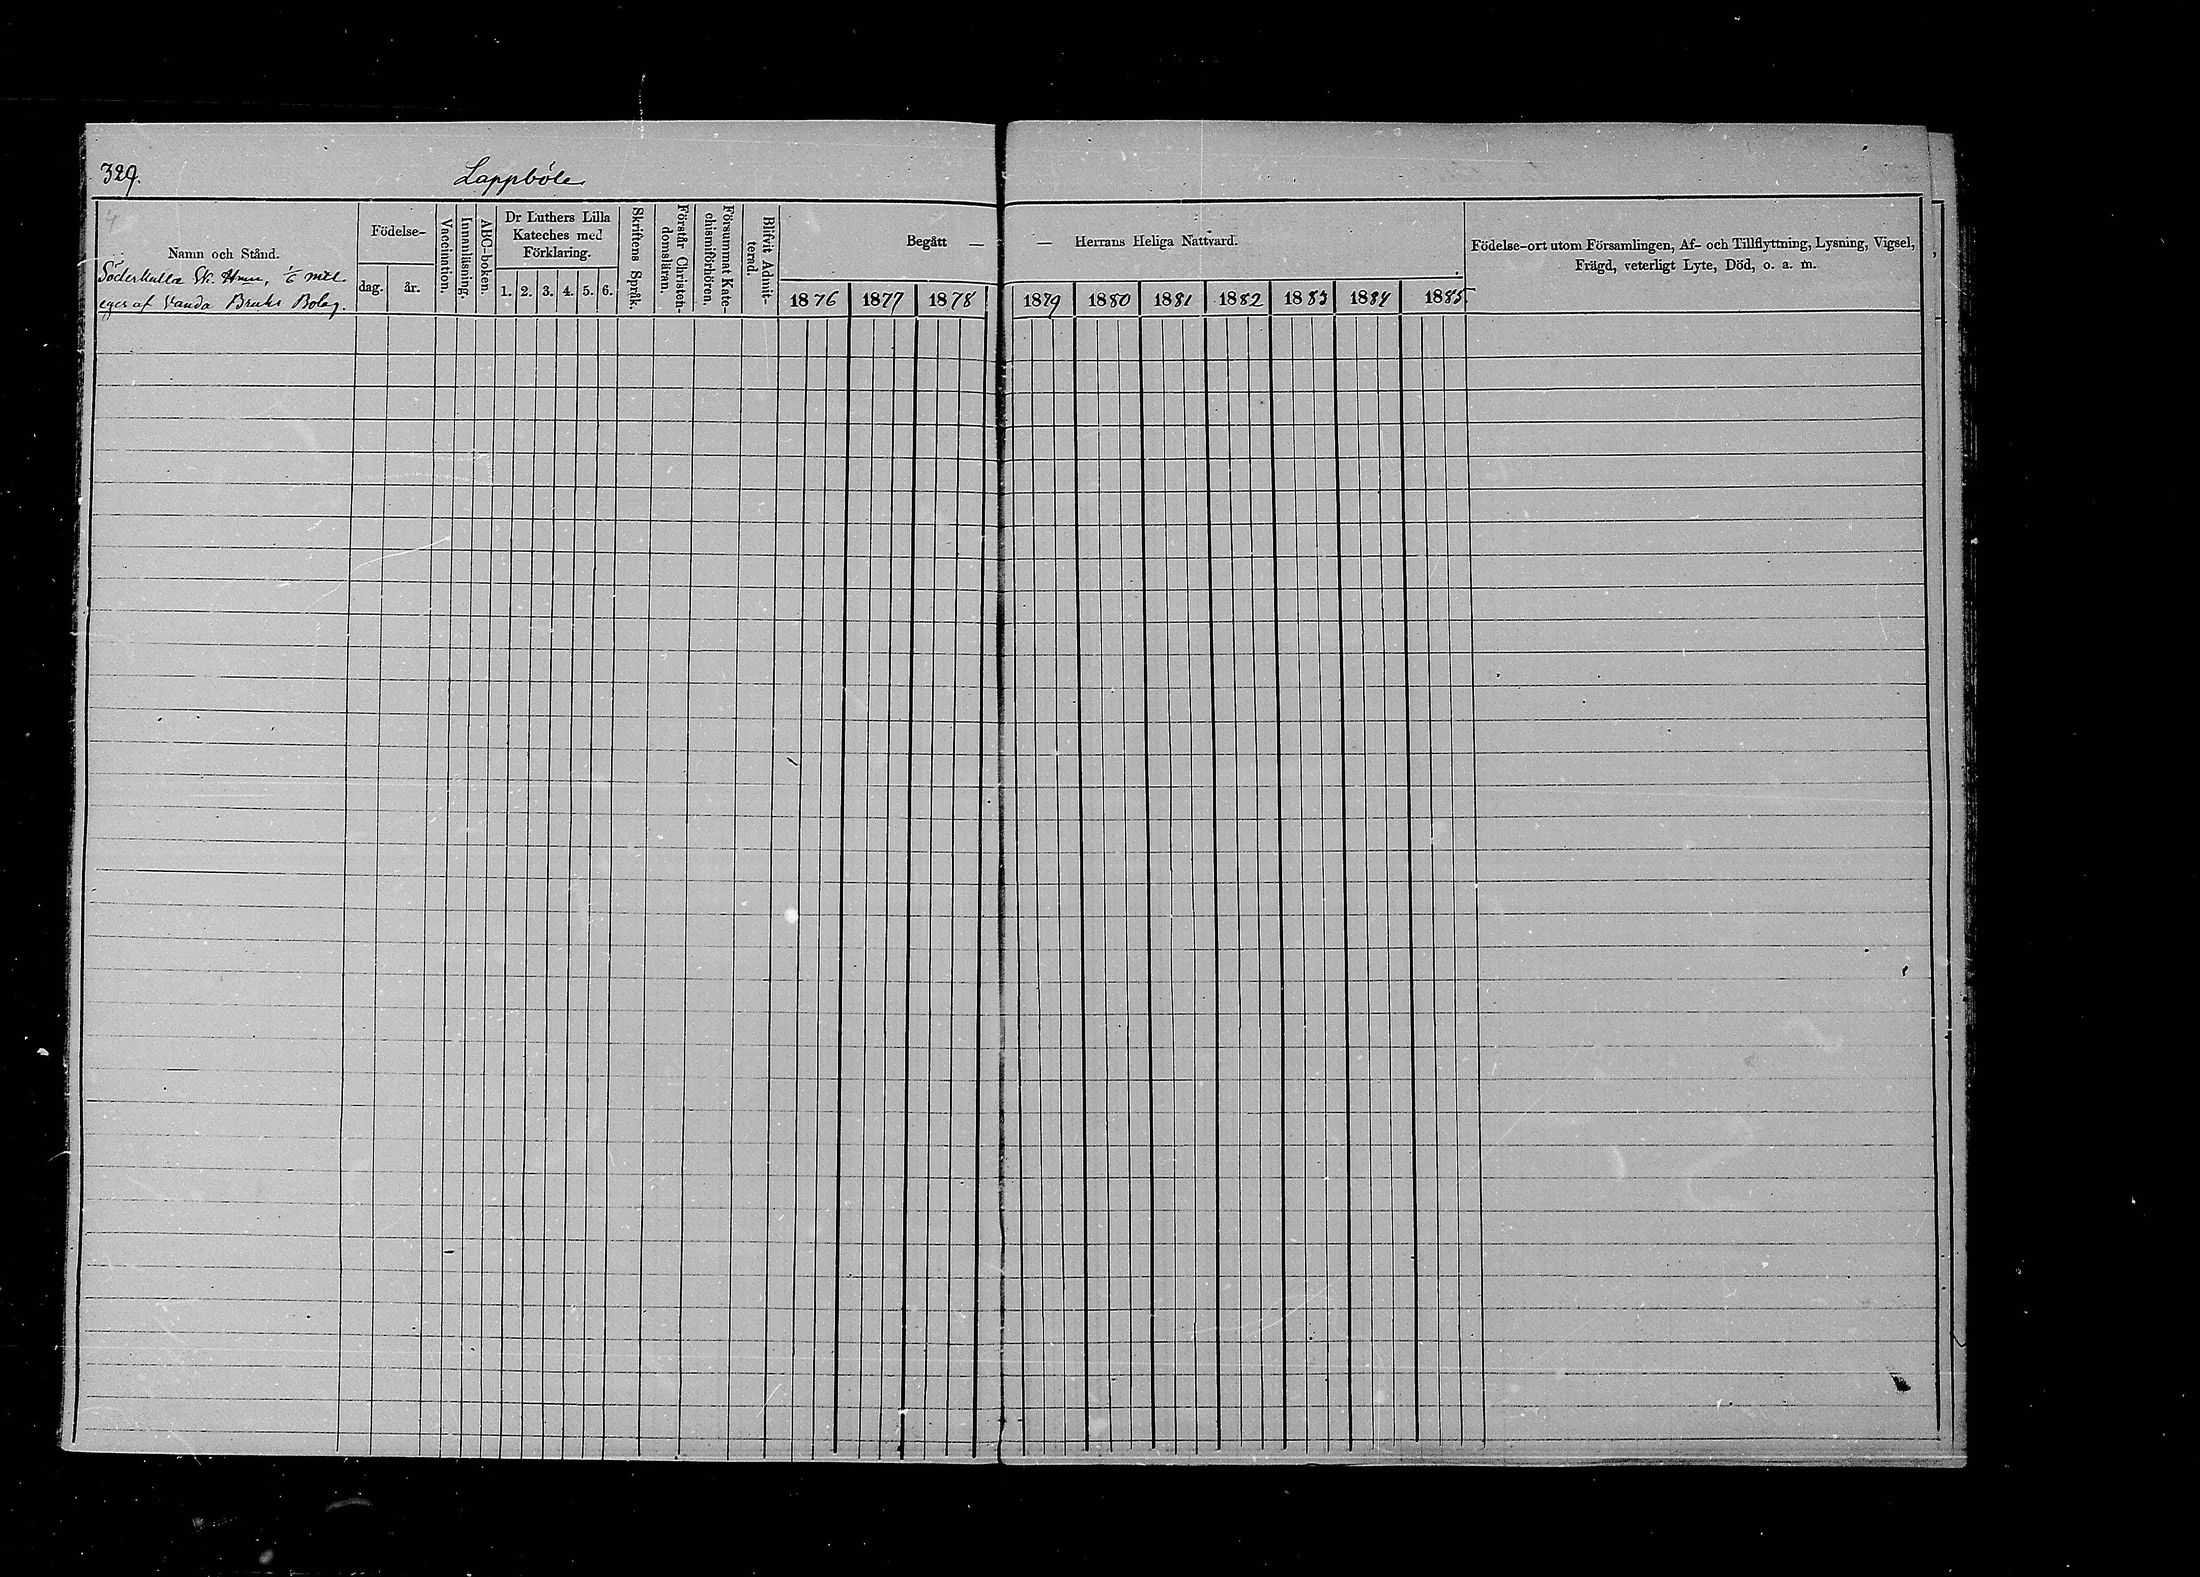 329.
Lappböle
Namn och Stånd.
Söderkulla Sk. Hmn, 1/6 mtl.
eges af Vanda Bruks Bolag.
Födelse-
dag.
år.
Vaccination.
Innanläsning.
ABC-boken.
Dr Luthers Lilla
Kateches med
Förklaring.
1. 2. 3. 4. 5. 6.
Skriftens Språk.
Förstår Christen-
domsläran.
Försummat Kate-
chismiförhören.
Blifvit Admit-
terad.
Begått —
1876 1877 1878
— Herrans Heliga Nattvard.
1879 1880 1881 1882 1883 1884 1885
Födelse-ort utom Församlingen, Af- och Tillflyttning, Lysning, Vigsel,
Frägd, veterligt Lyte, Död, o. a. m.